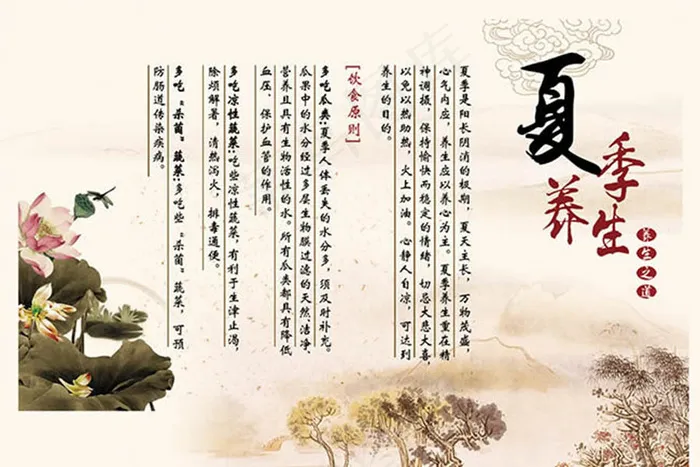 夏季养生
养生之道
夏季是阳长阴消的极期，夏天主长，万物茂盛，
心气内应，养生应以养心为主。夏季养生重在精
神调摄，保持愉快而稳定的情绪，切忌大悲大喜，
以免以热助热，火上加油。心静人自凉，可达到
养生的目的。
[饮食原则]
多吃瓜类:夏季人体丢失的水分多，须及时补充。
瓜果中的水分经过多层生物膜过滤的天然、洁净、
营养且具有生物活性的水。所有瓜类都具有降低
血压，保护血管的作用。
多吃凉性蔬菜:吃些凉性蔬菜，有利于生津止渴，
除烦解暑，清热泻火，排毒通便。
多吃“杀菌”蔬菜:多吃些“杀菌”蔬菜，可预
防肠道传染疾病。